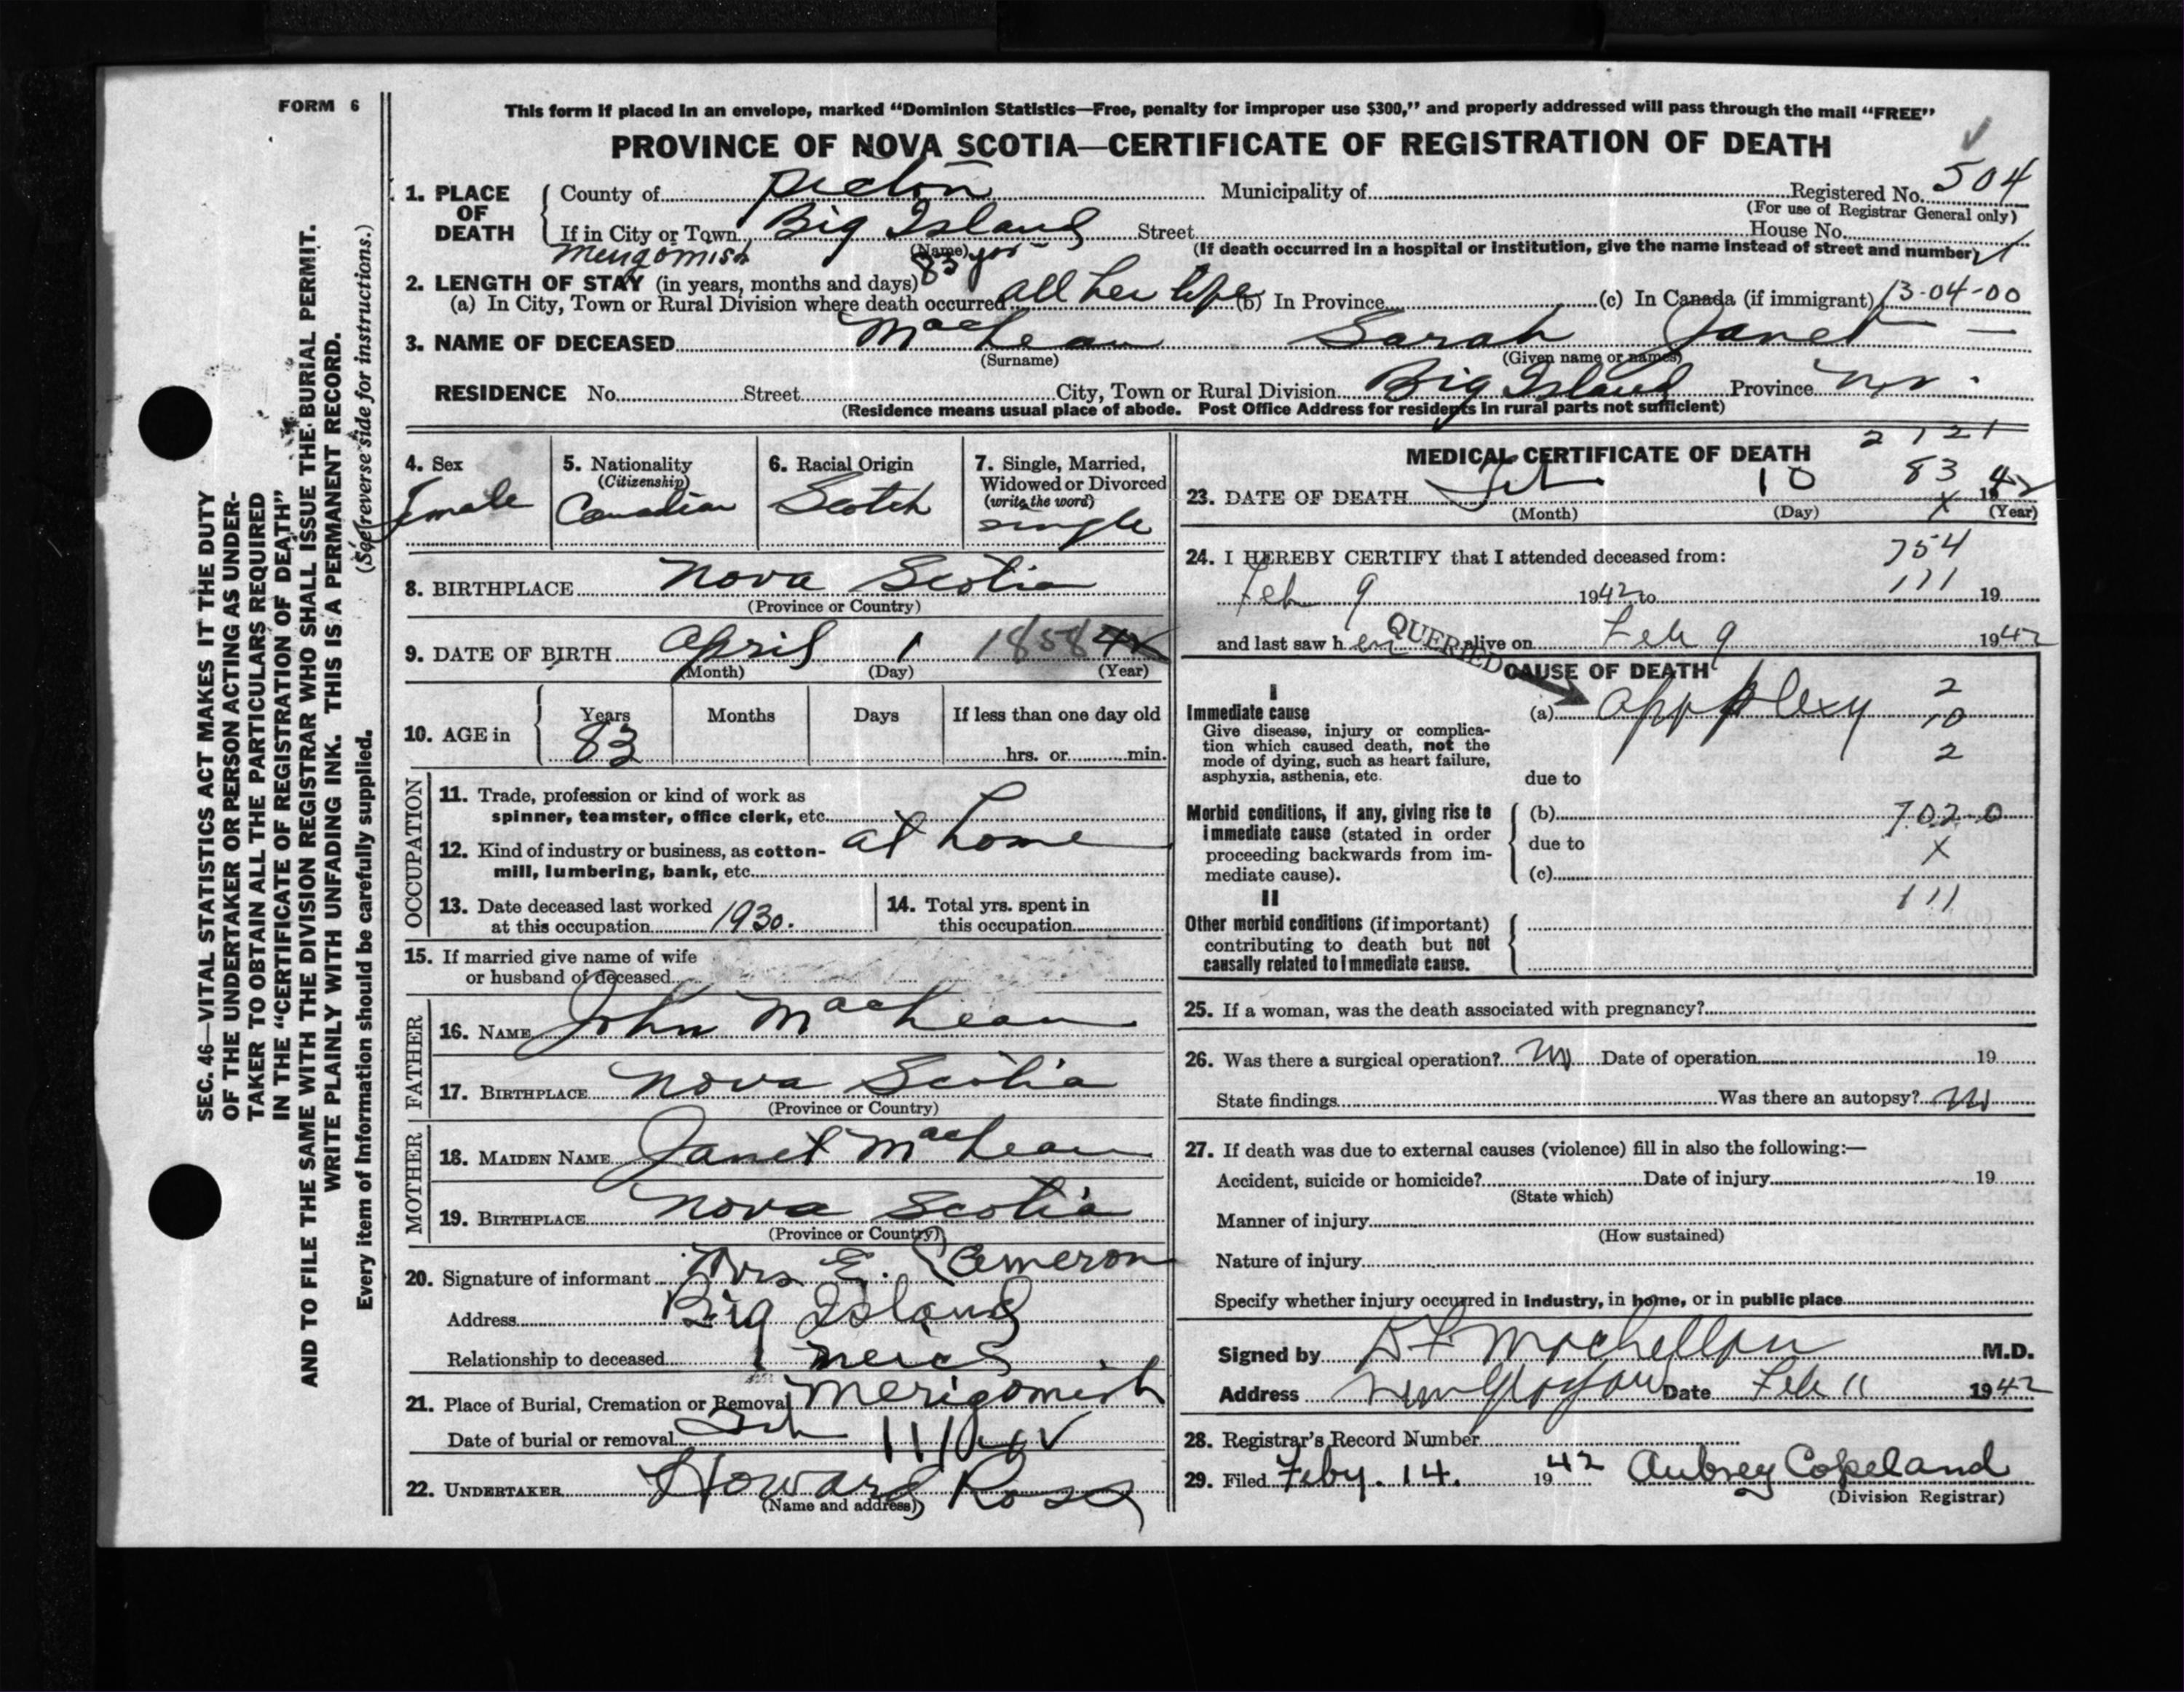 FORM 6
This form if placed in an envelope, marked "Dominion Statistics—Free, penalty for improper use $300," and properly addressed will pass through the mail "FREE"
PROVINCE OF NOVA SCOTIA—CERTIFICATE OF REGISTRATION OF DEATH
1. PLACE OF DEATH County of Pictou Municipality of Registered No. 504
(For use of Registrar General only)
If in City or Town Big Island Street House No.
Merigomish (Name) (If death occurred in a hospital or institution, give the name instead of street and number)
2. LENGTH OF STAY (in years, months and days) 83 yrs
(a) In City, Town or Rural Division where death occurred all her life (b) In Province (c) In Canada (if immigrant) 13-04-00
3. NAME OF DECEASED MacLean Sarah Janet
(Surname) (Given name or names)
RESIDENCE No. Street City, Town or Rural Division Big Island Province N.S.
(Residence means usual place of abode. Post Office Address for residents in rural parts not sufficient)
4. Sex Female
5. Nationality (Citizenship) Canadian
6. Racial Origin Scotch
7. Single, Married, Widowed or Divorced (write the word) single
8. BIRTHPLACE Nova Scotia
(Province or Country)
9. DATE OF BIRTH April 1 1858
(Month) (Day) (Year)
10. AGE in Years 83 Months Days If less than one day old
hrs. or min.
OCCUPATION
11. Trade, profession or kind of work as
spinner, teamster, office clerk, etc. at home
12. Kind of industry or business, as cotton-
mill, lumbering, bank, etc.
13. Date deceased last worked at this occupation 1930.
14. Total yrs. spent in this occupation
15. If married give name of wife
or husband of deceased
FATHER
16. NAME John MacLean
17. BIRTHPLACE Nova Scotia
(Province or Country)
MOTHER
18. MAIDEN NAME Janet MacLean
19. BIRTHPLACE Nova Scotia
(Province or Country)
20. Signature of informant Mrs E. Cameron
Address Big Island
Relationship to deceased neice
21. Place of Burial, Cremation or Removal Merigomish
Date of burial or removal Feb 11
22. UNDERTAKER Howard Rose
(Name and address)
2 121
MEDICAL CERTIFICATE OF DEATH
83
23. DATE OF DEATH Feb. 10 1942
(Month) (Day) X (Year)
24. I HEREBY CERTIFY that I attended deceased from: 754
Feb 9 1942 to 111 19
and last saw her alive on Feb 9 1942
QUERIED
CAUSE OF DEATH
I
Immediate cause (a) appplexy 2
Give disease, injury or complica- 10
tion which caused death, not the
mode of dying, such as heart failure, 2
asphyxia, asthenia, etc. due to
Morbid conditions, if any, giving rise to (b) 702-0
immediate cause (stated in order due to
proceeding backwards from im- X
mediate cause). (c)
II 111
Other morbid conditions (if important)
contributing to death but not
causally related to immediate cause.
25. If a woman, was the death associated with pregnancy?
26. Was there a surgical operation? No Date of operation 19
State findings Was there an autopsy? No
27. If death was due to external causes (violence) fill in also the following:—
Accident, suicide or homicide? Date of injury 19
(State which)
Manner of injury
(How sustained)
Nature of injury
Specify whether injury occurred in industry, in home, or in public place
Signed by D F MacLellan M.D.
Address New Glasgow Date Feb 11 1942
28. Registrar's Record Number
29. Filed Feby. 14. 1942 Aubrey Copeland
(Division Registrar)
SEC. 46—VITAL STATISTICS ACT MAKES IT THE DUTY
OF THE UNDERTAKER OR PERSON ACTING AS UNDER-
TAKER TO OBTAIN ALL THE PARTICULARS REQUIRED
IN THE "CERTIFICATE OF REGISTRATION OF DEATH"
AND TO FILE THE SAME WITH THE DIVISION REGISTRAR WHO SHALL ISSUE THE BURIAL PERMIT.
WRITE PLAINLY WITH UNFADING INK. THIS IS A PERMANENT RECORD.
Every item of information should be carefully supplied. (See reverse side for instructions.)